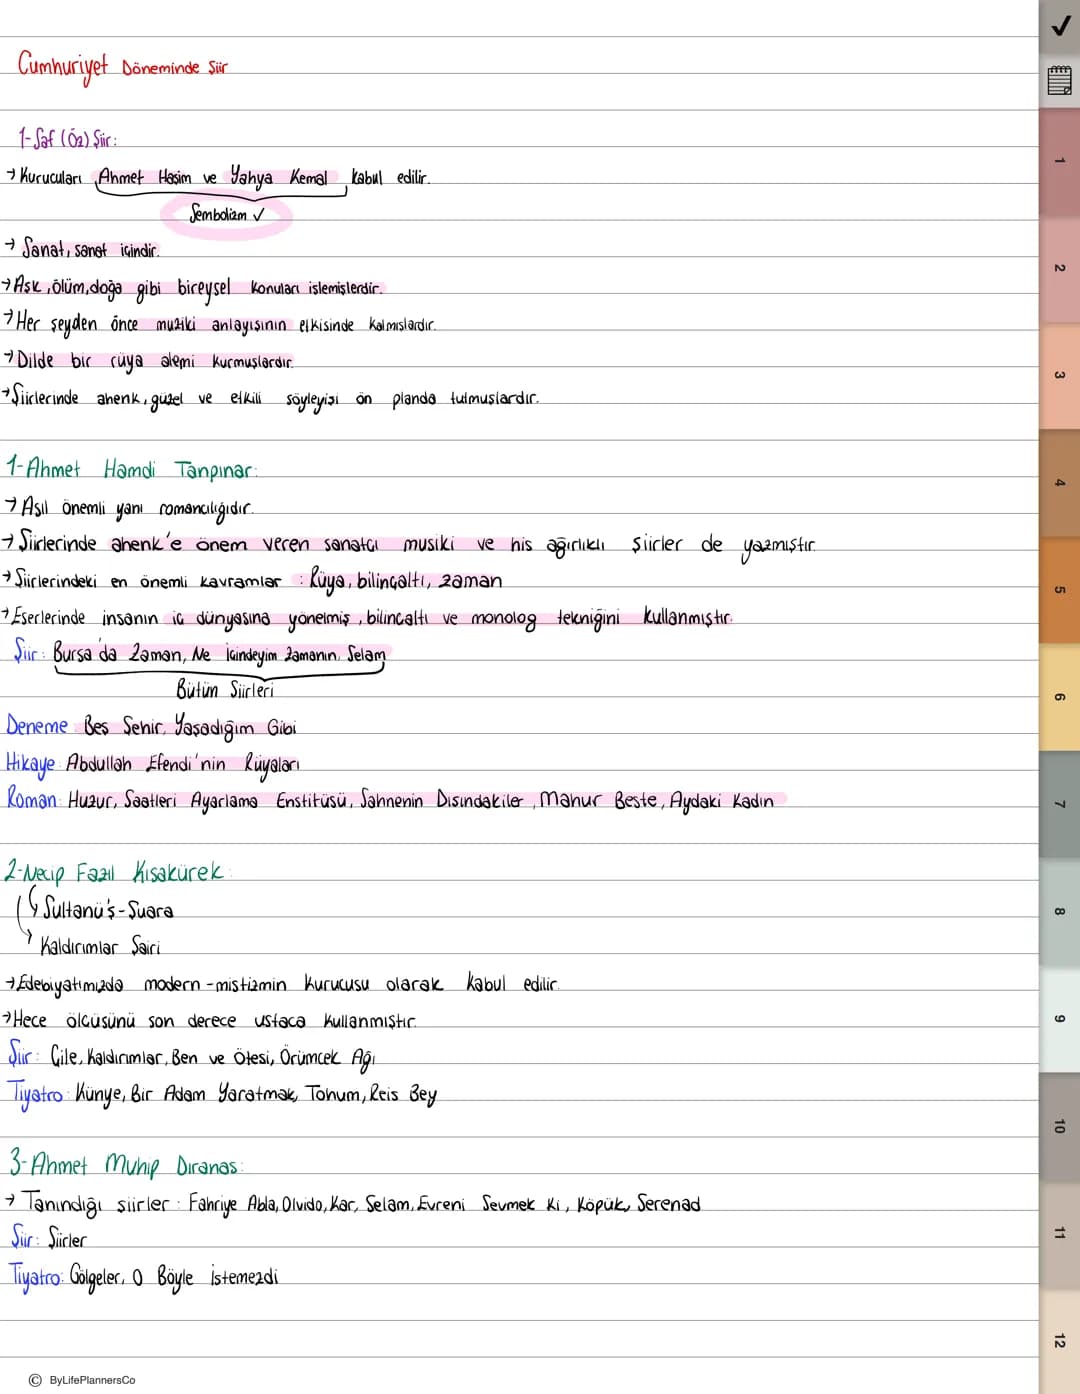 Cumhuriyet Döneminde Şiir
1-Saf (Öz) Şiir:
→ Kurucuları Ahmet Haşim ve Yahya Kemal kabul edilir.
Sembolizm ✓
→ Sanat, sanat içindir.
→ Aşk, ölüm, doğa gibi bireysel konuları işlemişlerdir.
→ Her şeyden önce muziki anlayışının etkisinde kalmışlardır.
→ Dilde bir rüya alemi kurmuşlardır.
→ Şiirlerinde ahenk, güzel ve etkili söyleyişi ön planda tutmuşlardır.
1-Ahmet Hamdi Tanpınar:
→ Asıl önemli yanı romancılığıdır.
→ Şiirlerinde ahenk'e önem veren sanatçı musiki ve his ağırlıklı şiirler de yazmıştır.
→ Şiirlerindeki en önemli kavramlar : Rüya, bilinçaltı, zaman
→ Eserlerinde insanın iç dünyasına yönelmiş, bilinçaltı ve monolog tekniğini kullanmıştır.
Şiir: Bursa'da Zaman, Ne İçindeyim Zamanın, Selam
Bütün Şiirleri
Deneme: Beş Şehir, Yaşadığım Gibi
Hikaye: Abdullah Efendi'nin Rüyaları
Roman: Huzur, Saatleri Ayarlama Enstitüsü, Sahnenin Dışındakiler, Mahur Beste, Aydaki Kadın
2-Necip Fazıl Kısakürek:
Sultanü's-Şuara
Kaldırımlar Şairi
→ Edebiyatımızda modern-mistizmin kurucusu olarak kabul edilir.
→ Hece ölçüsünü son derece ustaca kullanmıştır.
Şiir: Çile, Kaldırımlar, Ben ve Ötesi, Örümcek Ağı
Tiyatro: Künye, Bir Adam Yaratmak, Tohum, Reis Bey
3-Ahmet Muhip Dıranas:
→ Tanındığı şiirler : Fahriye Abla, Olvido, Kar, Selam, Evreni Sevmek Ki, Köpük, Serenad
Şiir: Şiirler
Tiyatro: Gölgeler, O Böyle İstemezdi
✓
1
2
3
4
5
6
7
8
9
10
11
12
© ByLifePlannersCo